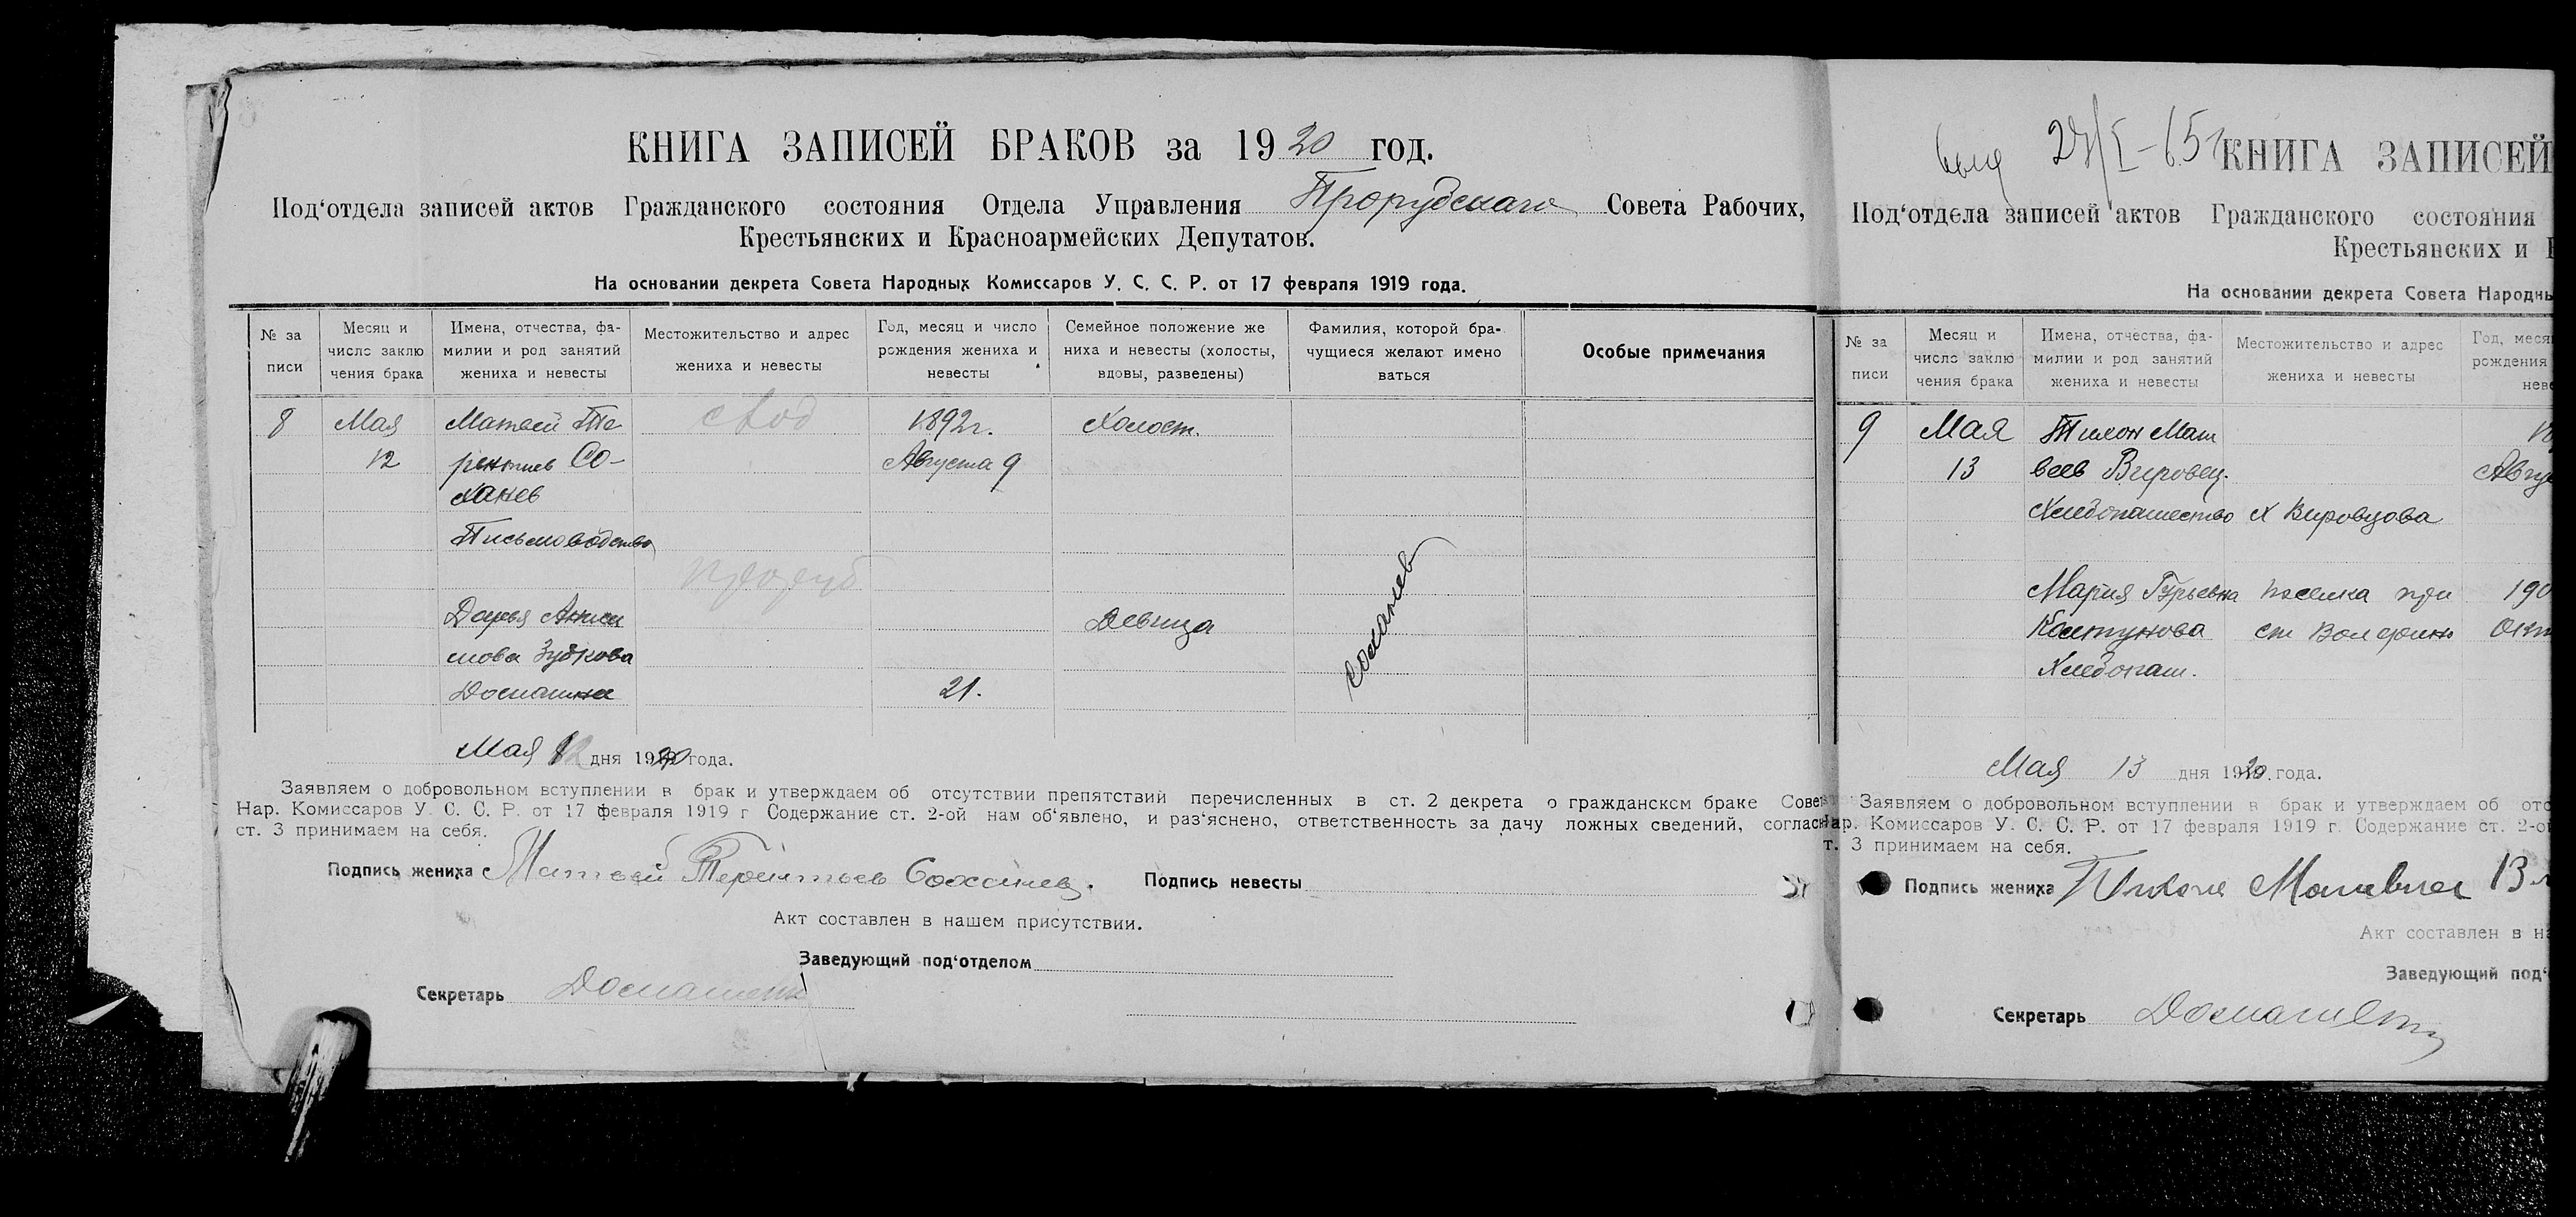 КНИГА ЗАПИСЕЙ БРАКОВ за 1920 год.
Под‘отдела записей актов Гражданского состояния Отдела Управления Прорубскаго Совета Рабочих,
Крестьянских и Красноармейских Депутатов.
На основании декрета Совета Народных Комиссаров У. С. С. Р. от 17 февраля 1919 года.
№ за писи
Месяц и число заклю чения брака
Имена, отчества, фа- милии и род занятий жениха и невесты
Местожительство и адрес жениха и невесты
Год, месяц и число рождения жениха и невесты
Семейное положение же ниха и невесты (холосты, вдовы, разведены)
Фамилия, которой бра- чущиеся желают имено ваться
Особые примечания
8 Мая Матвей Те 1892г. Холост.
12 рентиев Со- Августа 9
ханев
Письмоводство
Дарья Аниси Девица Соханев
мова Зубкова
Домашне 21.
Мая 12 дня 1920 года.
Заявляем о добровольном вступлении в брак и утверждаем об отсутствии препятствий перечисленных в ст. 2 декрета о гражданском браке Совет
Нар. Комиссаров У. С. С. Р. от 17 февраля 1919 г Содержание ст. 2-ой нам об‘явлено, и раз‘яснено, ответственность за дачу ложных сведений, согласн
ст. 3 принимаем на себя.
Подпись жениха Матвей Терентьев Соханев. Подпись невесты
Акт составлен в нашем присутствии.
Заведующий под‘отделом
Секретарь
27/I-65г
КНИГА ЗАПИСЕЙ
Под‘отдела записей актов Гражданского состояния
Крестьянских и
На основании декрета Совета Народны
№ за писи
Месяц и число заклю чения брака
Имена, отчества, фа- милии и род занятий жениха и невесты
Местожительство и адрес жениха и невесты
Год, меся рождения неве
9 Мая Тихон Мат
13 веев Вировец. Авгу
Хлебопашество х Вировцова
Мария Гурьевна поселка при 190
Колтунова ст Волфино Окт
Хлебопаш.
Мая 13 дня 1920 года.
Заявляем о добровольном вступлении в брак и утверждаем об отс
Нар. Комиссаров У. С. С. Р. от 17 февраля 1919 г. Содержание ст. 2-ой
т. 3 принимаем на себя.
Подпись жениха
Акт составлен в на
Заведующий под‘
Секретарь